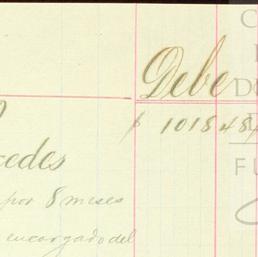 Debe
$ 1018484
cedes
por 8 meses
encargado del